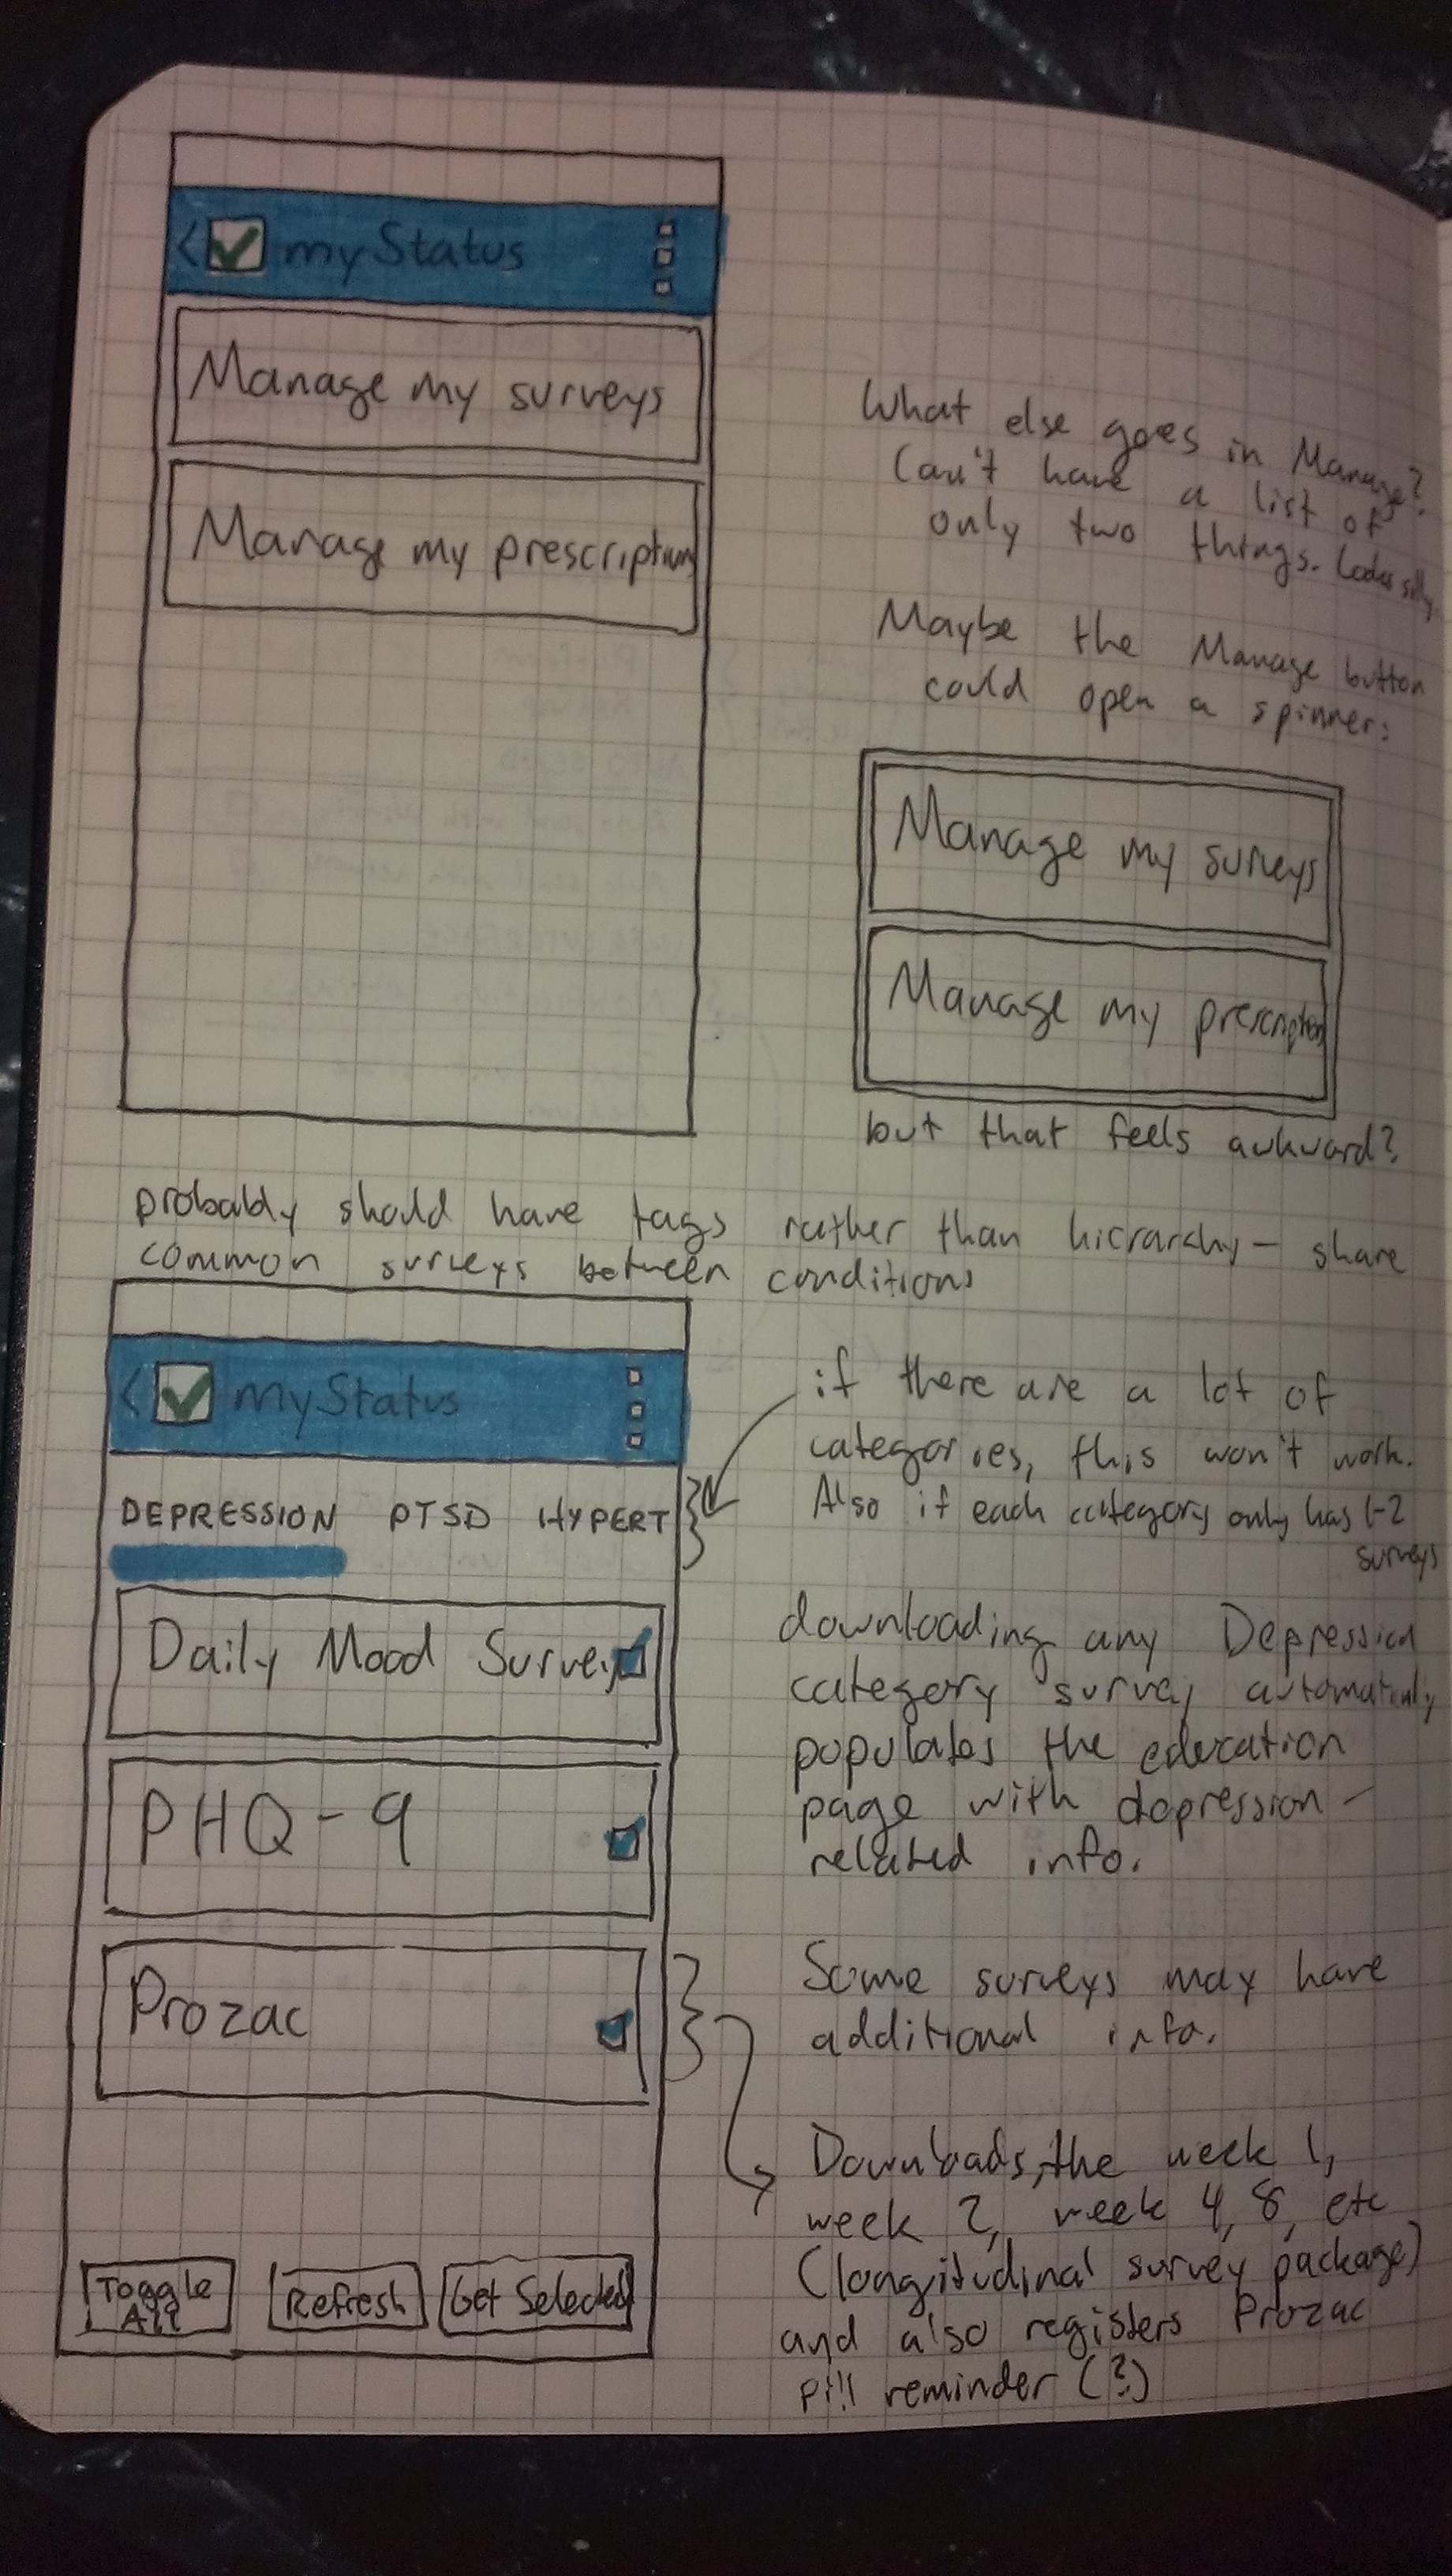 < myStatus
Manage my surveys
Manage my prescriptions
What else goes in Manage?
Can't have a list of
only two things. Looks silly.
Maybe the Manage button
could open a spinner:
Manage my surveys
Manage my prescriptions
but that feels awkward?
probably should have tags rather than hierarchy - share
common surveys between conditions
< myStatus
DEPRESSION PTSD HYPERT
if there are a lot of
categories, this won't work.
Also if each category only has 1-2
surveys
Daily Mood Survey
PHQ-9
Prozac
downloading any Depression
category survey automatically
populates the education
page with depression-
related info.
Some surveys may have
additional info.
Downloads the week 1,
week 2, week 4, 8, etc
(longitudinal survey package)
and also registers Prozac
pill reminder (?)
Toggle
All
Refresh
Get Selected